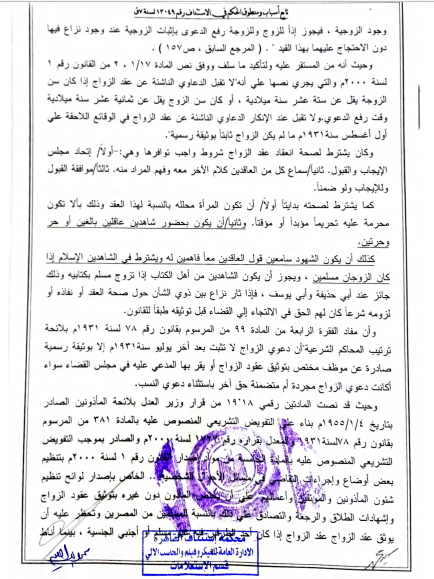 تابع أسباب ومنطوق الحكم في الاستئناف رقم ١٣٠٤٩ لسنة ٧ق
وجود الزوجية ، فيجوز إذاً للزوج وللزوجة رفع الدعوى بإثبات الزوجية عند وجود نزاع فيها
دون الاحتجاج عليهما بهذا القيد " . ( المرجع السابق ، ص١٥٧ )
وحيث أنه من المستقر عليه ولتأكيد ما سلف ووفق نص المادة ١/١٧ ، ٢ من القانون رقم ١
لسنة ٢٠٠٠م والتي يجري نصها علي أنه"لا تقبل الدعاوي الناشئة عن عقد الزواج إذا كان سن
الزوجة يقل عن ستة عشر سنة ميلادية ، أو كان سن الزوج يقل عن ثمانية عشر سنة ميلادية
وقت رفع الدعوي.ولا تقبل عند الإنكار الدعاوي الناشئة عن عقد الزواج في الوقائع اللاحقة علي
أول أغسطس سنة١٩٣١م ما لم يكن الزواج ثابتاً بوثيقة رسمية"
وكان يشترط لصحة انعقاد عقد الزواج شروط واجب توافرها وهي:-أولاً/ إتحاد مجلس
الإيجاب والقبول. ثانياً/سماع كل من العاقدين كلام الآخر معه وفهم المراد منه. ثالثاً/موافقة القبول
وللإيجاب ولو ضمناً.
كما يشترط لصحته بدايتاً أولاً/ أن تكون المرأة محلله بالنسبة لهذا العقد وذلك بألا تكون
محرمة عليه تحريماً مؤبداً أو مؤقتاً. وثانياً/أن يكون بحضور شاهدين عاقلين بالغين أو حر
وحرتين.
كذلك أن يكون الشهود سامعين قول العاقدين معاً فاهمين له ويشترط في الشاهدين الإسلام إذا
كان الزوجان مسلمين ، ويجوز أن يكون الشاهدين من أهل الكتاب إذا تزوج مسلم بكتابيه وذلك
جائز عند أبي حنيفة وأبي يوسف ، فإذا ثار نزاع بين ذوي الشأن حول صحة العقد أو نفاذه أو
لزومه شرعاً كان لهم الحق في الالتجاء إلي القضاء قبل توثيقه طبقاً للقانون.
وأن مفاد الفقرة الرابعة من المادة ٩٩ من المرسوم بقانون رقم ٧٨ لسنة ١٩٣١م بلائحة
ترتيب المحاكم الشرعية"أن دعوي الزواج لا تثبت بعد آخر يوليو سنة١٩٣١م إلا بوثيقة رسمية
صادرة عن موظف مختص بتوثيق عقود الزواج أو يقر بها المدعي عليه في مجلس القضاء سواء
أكانت دعوي الزواج مجردة أم متضمنة حق آخر باستثناء دعوي النسب.
وحيث قد نصت المادتين رقمي ١٩٬١٨ من قرار وزير العدل بلائحة المأذونين الصادر
بتاريخ ١٩٥٥/١/٤م بناء علي التفويض التشريعي المنصوص عليه بالمادة ٣٨١ من المرسوم
بقانون رقم ٧٨لسنة١٩٣١ والمعدل بقراره رقم لسنة ٢٠٠٠م والصادر بموجب التفويض
التشريعي المنصوص عليه بالمادة من مواد إصدار القانون رقم ١ لسنة ٢٠٠٠م بتنظيم
بعض أوضاع وإجراءات التقاضي في مسائل الأحوال الشخصية .. الخاص بإصدار لوائح تنظيم
شئون المأذونين والموثقين وأعمالهم علي أن يختص المأذون دون غيره بتوثيق عقود الزواج
وإشهادات الطلاق والرجعة والتصادق علي ذلك بالنسبة للمسلمين من المصريين وتحظر عليه أن
يوثق عقد الزواج عقد الزواج إذا كان أحد الطرفين غير مسلم أو أجنبي الجنسية ، بينما أناط
محكمة استئناف القاهرة
الادارة العامة للميكروفيلم والحاسب الآلي
قسم الاستعلامات